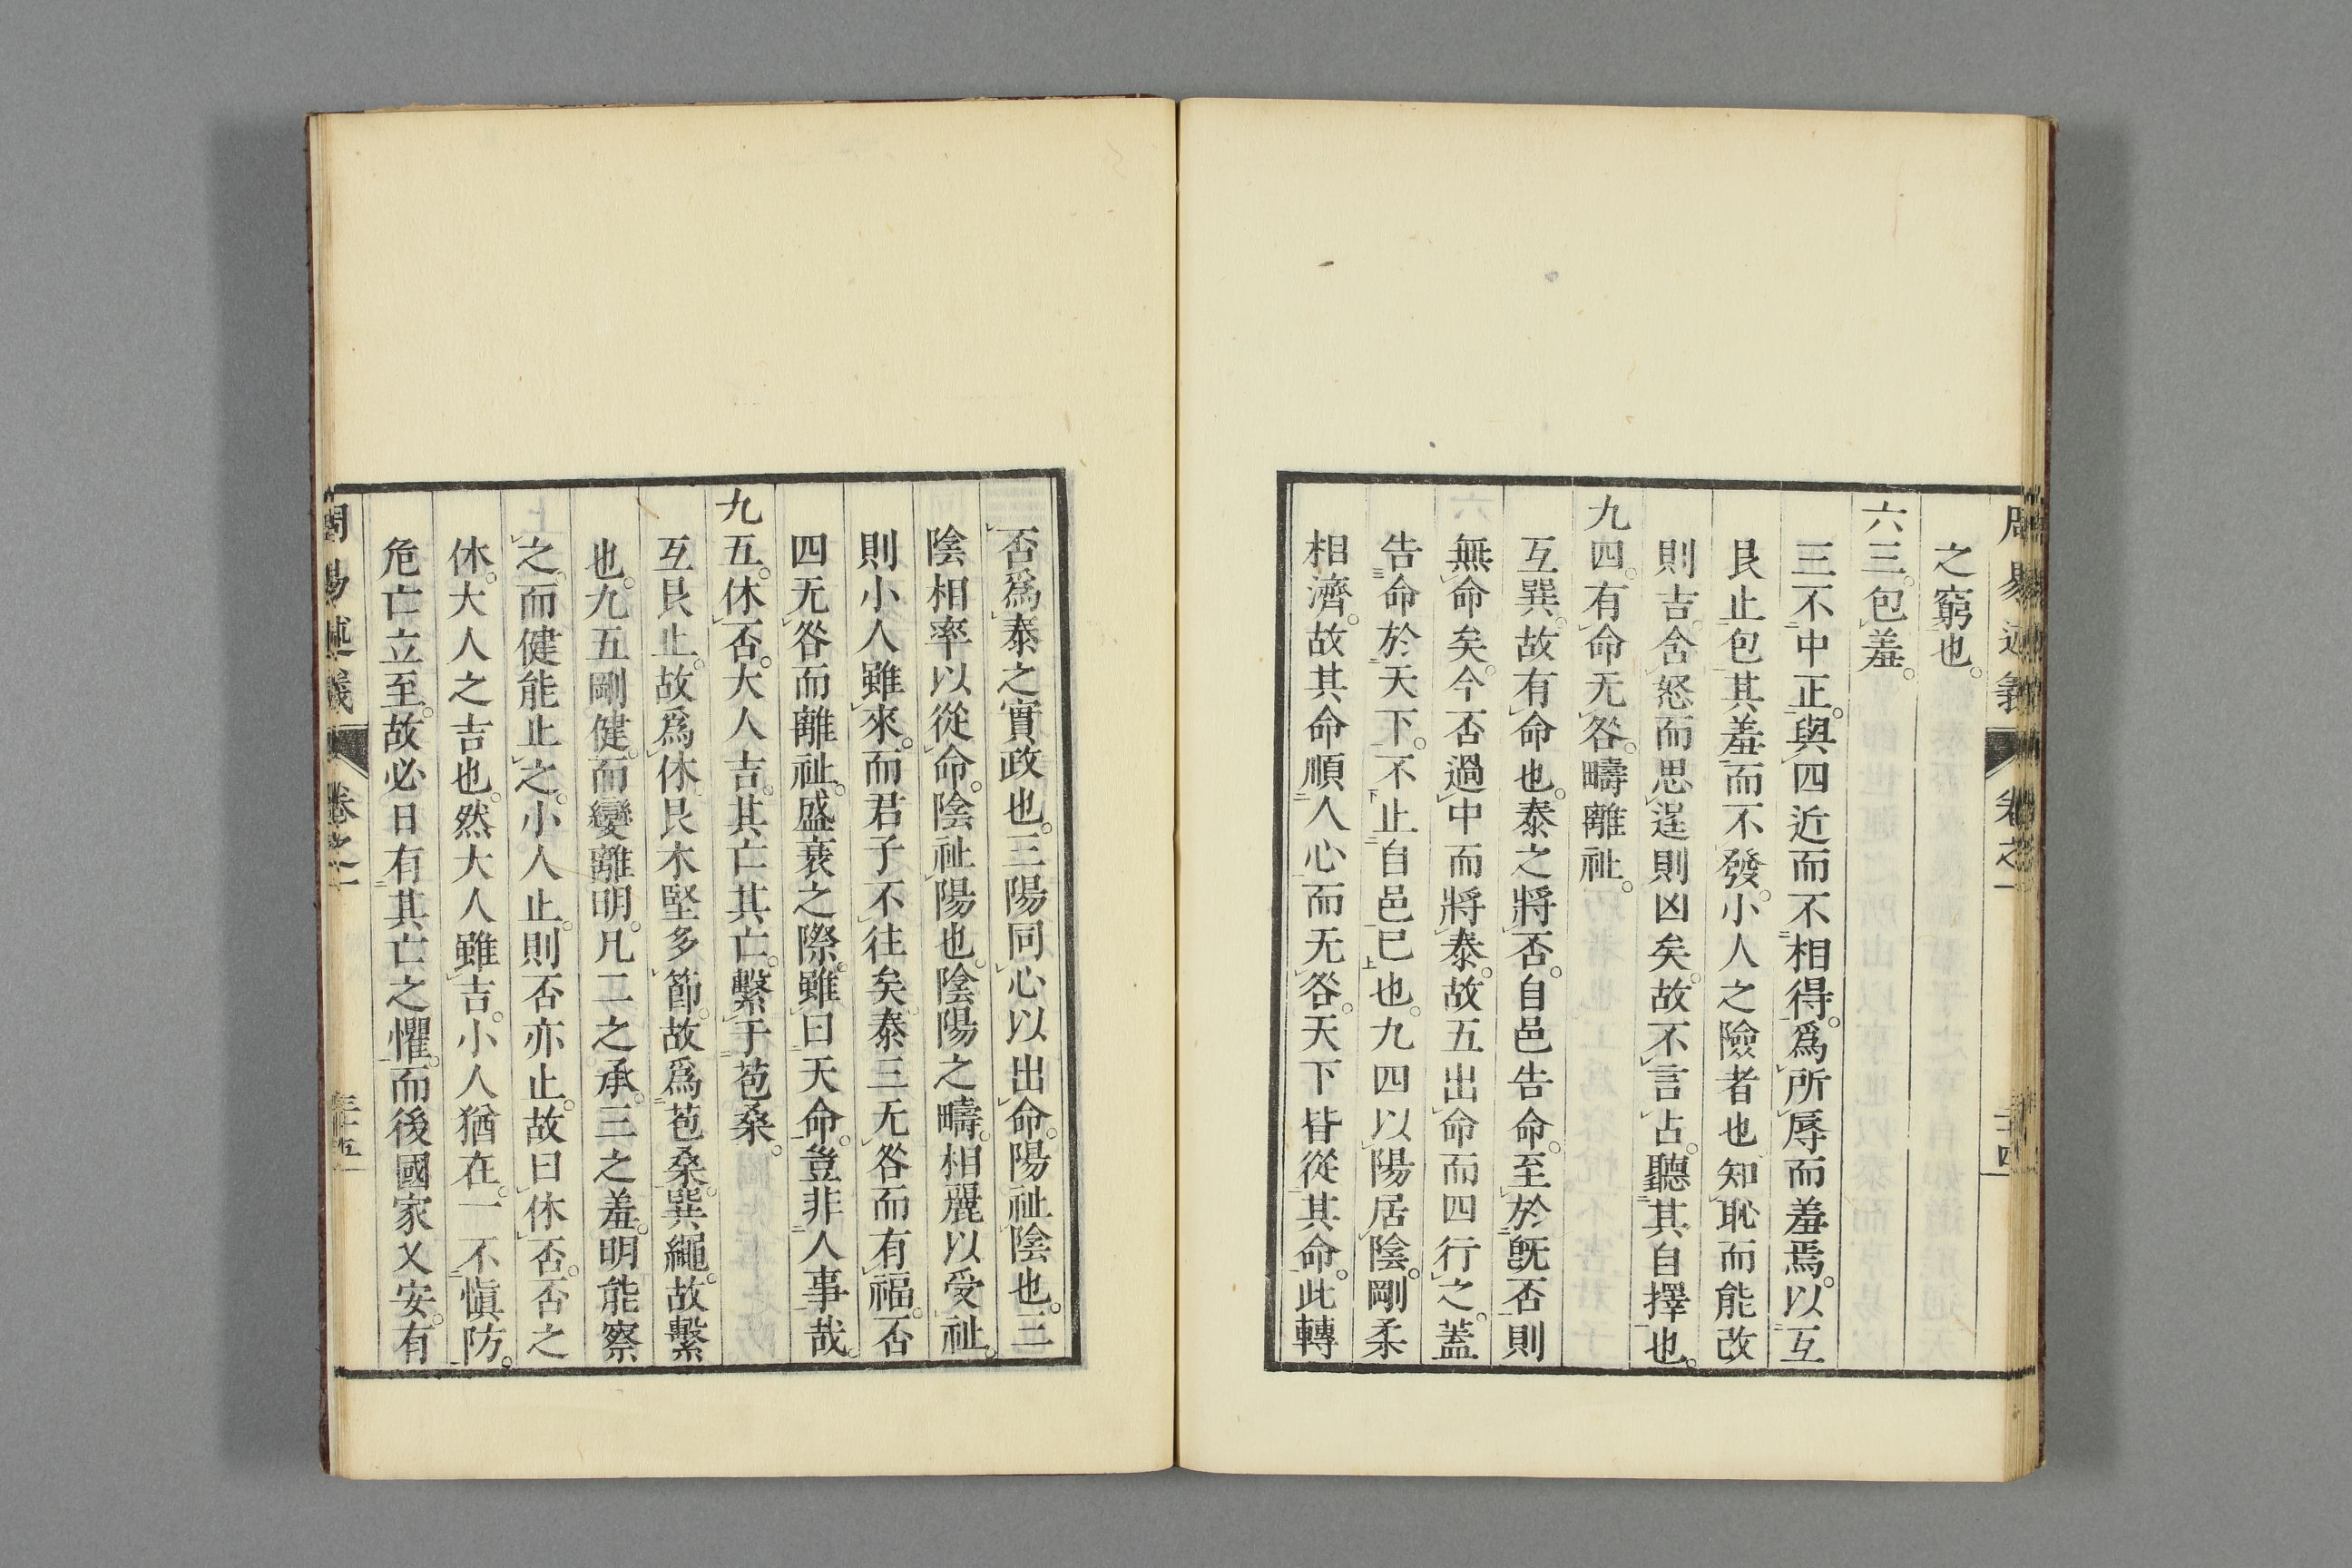 周易述義 卷之一 三十四
之窮也。
六三。包羞。
三不中正。與四近而不相得。爲所辱而羞焉。以互
艮止包其羞而不發。小人之險者也知恥而能改
則吉。含怒而思逞則凶矣。故不言占。聽其自擇也。
九四。有命无咎。疇離祉。
互巽。故有命也。泰之將否。自邑告命。至於旣否則
無命矣。今否過中而將泰。故五出命而四行之。蓋
告命於天下。不止自邑已也。九四以陽居陰。剛柔
相濟。故其命順人心而无咎。天下皆從其命。此轉
否爲泰之實政也。三陽同心以出命。陽祉陰也。三
陰相率以從命。陰祉陽也。陰陽之疇。相麗以受祉。
則小人雖來。而君子不往矣。泰三无咎而有福。否
四无咎而離祉。盛衰之際。雖曰天命。豈非人事哉。
九五。休否。大人吉。其亡其亡。繫于苞桑。
互艮止。故爲休。艮木堅多節。故爲苞桑。巽繩。故繫
也。九五剛健。而變離明。凡二之承。三之羞。明能察
之。而健能止之。小人止。則否亦止。故曰休否。否之
休。大人之吉也。然大人雖吉。小人猶在。一不愼防。
危亡立至。故必日有其亡之懼。而後國家乂安。有
周易述義 卷之一 三十五